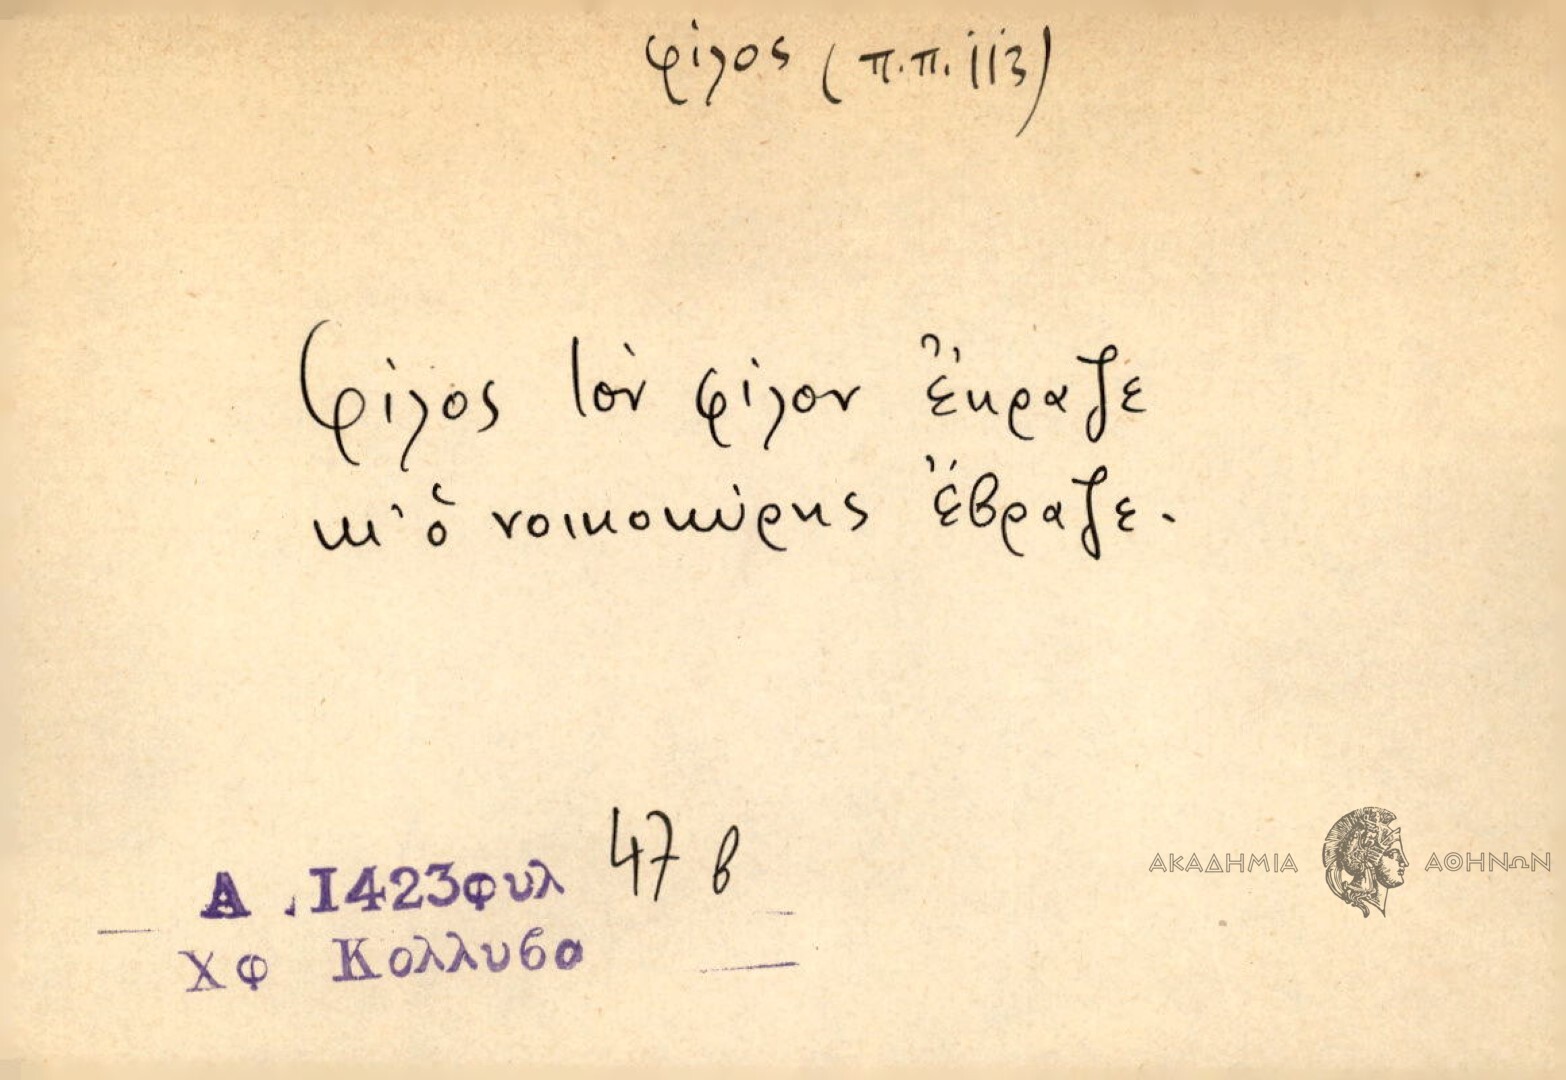 φίλος (π.π. 113)
Φίλος τὸν φίλον ἔκραζε
κι' ὁ νοικοκύρης ἔβραζε.
Α.1423φυλ 47 β
Χφ Κολλυβα
ΑΚΑΔΗΜΙΑ ΑΘΗΝΩΝ